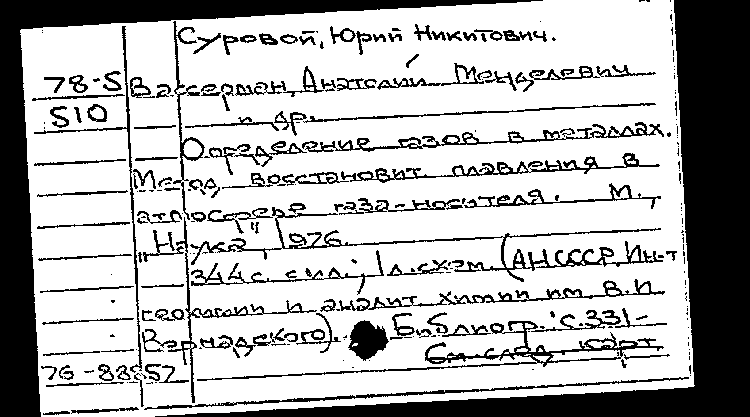 Суровой, Юрий Никитович.
78-5 Вассерман, Анатолий Менделевич
510 и др.
Определение газов в металлах.
Метод восстановит. плавления в
атмосфере газа-носителя. М.,
"Наука", 1976.
344 с. с ил.; 1 л. схем. (АН СССР. Ин-т
геохимии и аналит. химии им. В.И.
Вернадского). Библиогр.: с. 331-
См. след. карт.
76-83857